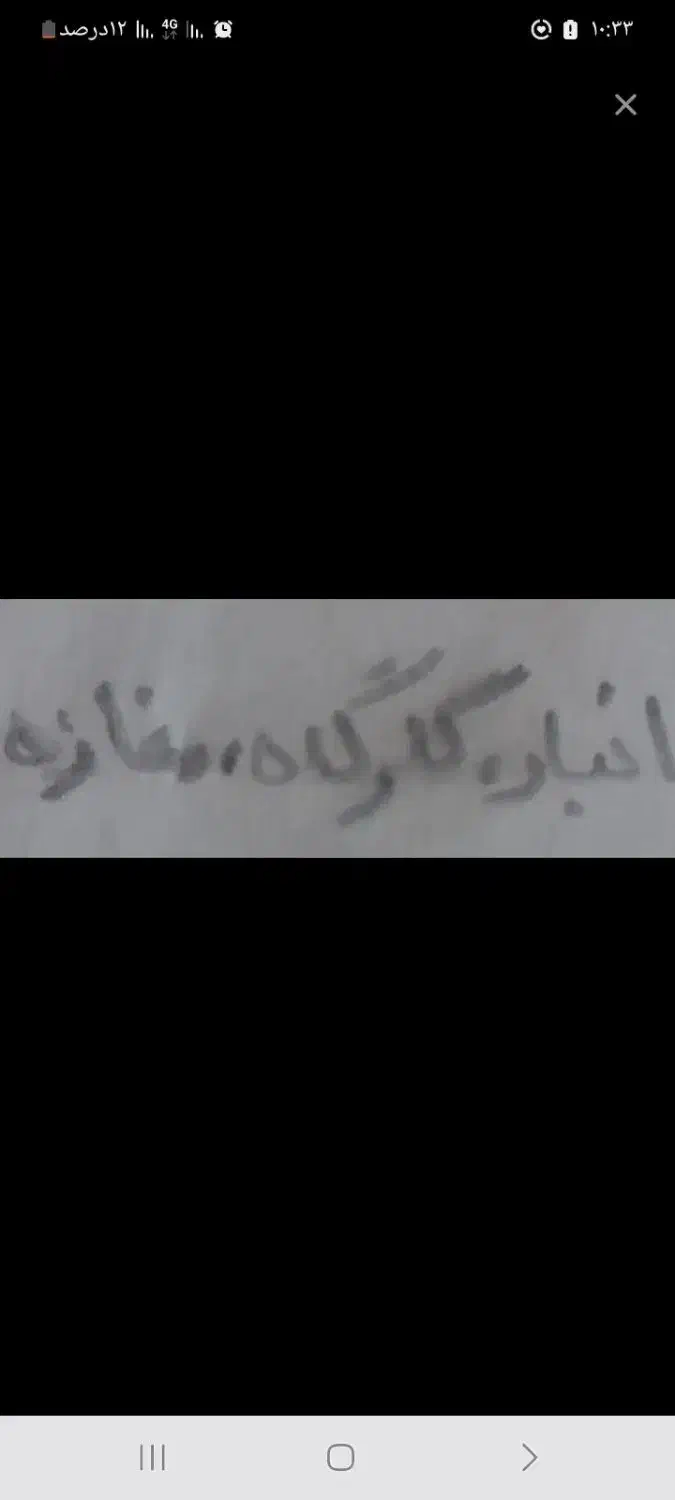 ۱۲درصد 4G ۱۰:۳۳
انبار، کارگاه، مغازه